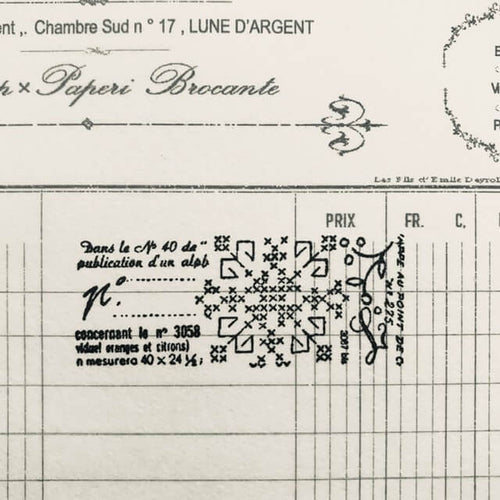 ent ,. Chambre Sud n ° 17 , LUNE D'ARGENT
h × Paperi Brocante
Les Fils d'Emile Deyrol
PRIX FR. C,
Dans le Nº 40 de "
publication d'un alph
nº.
concernant le nº 3058
viduel oranges et citrons)
n mesurera 40 × 24 ½ ;
2087 bis
Nº 225